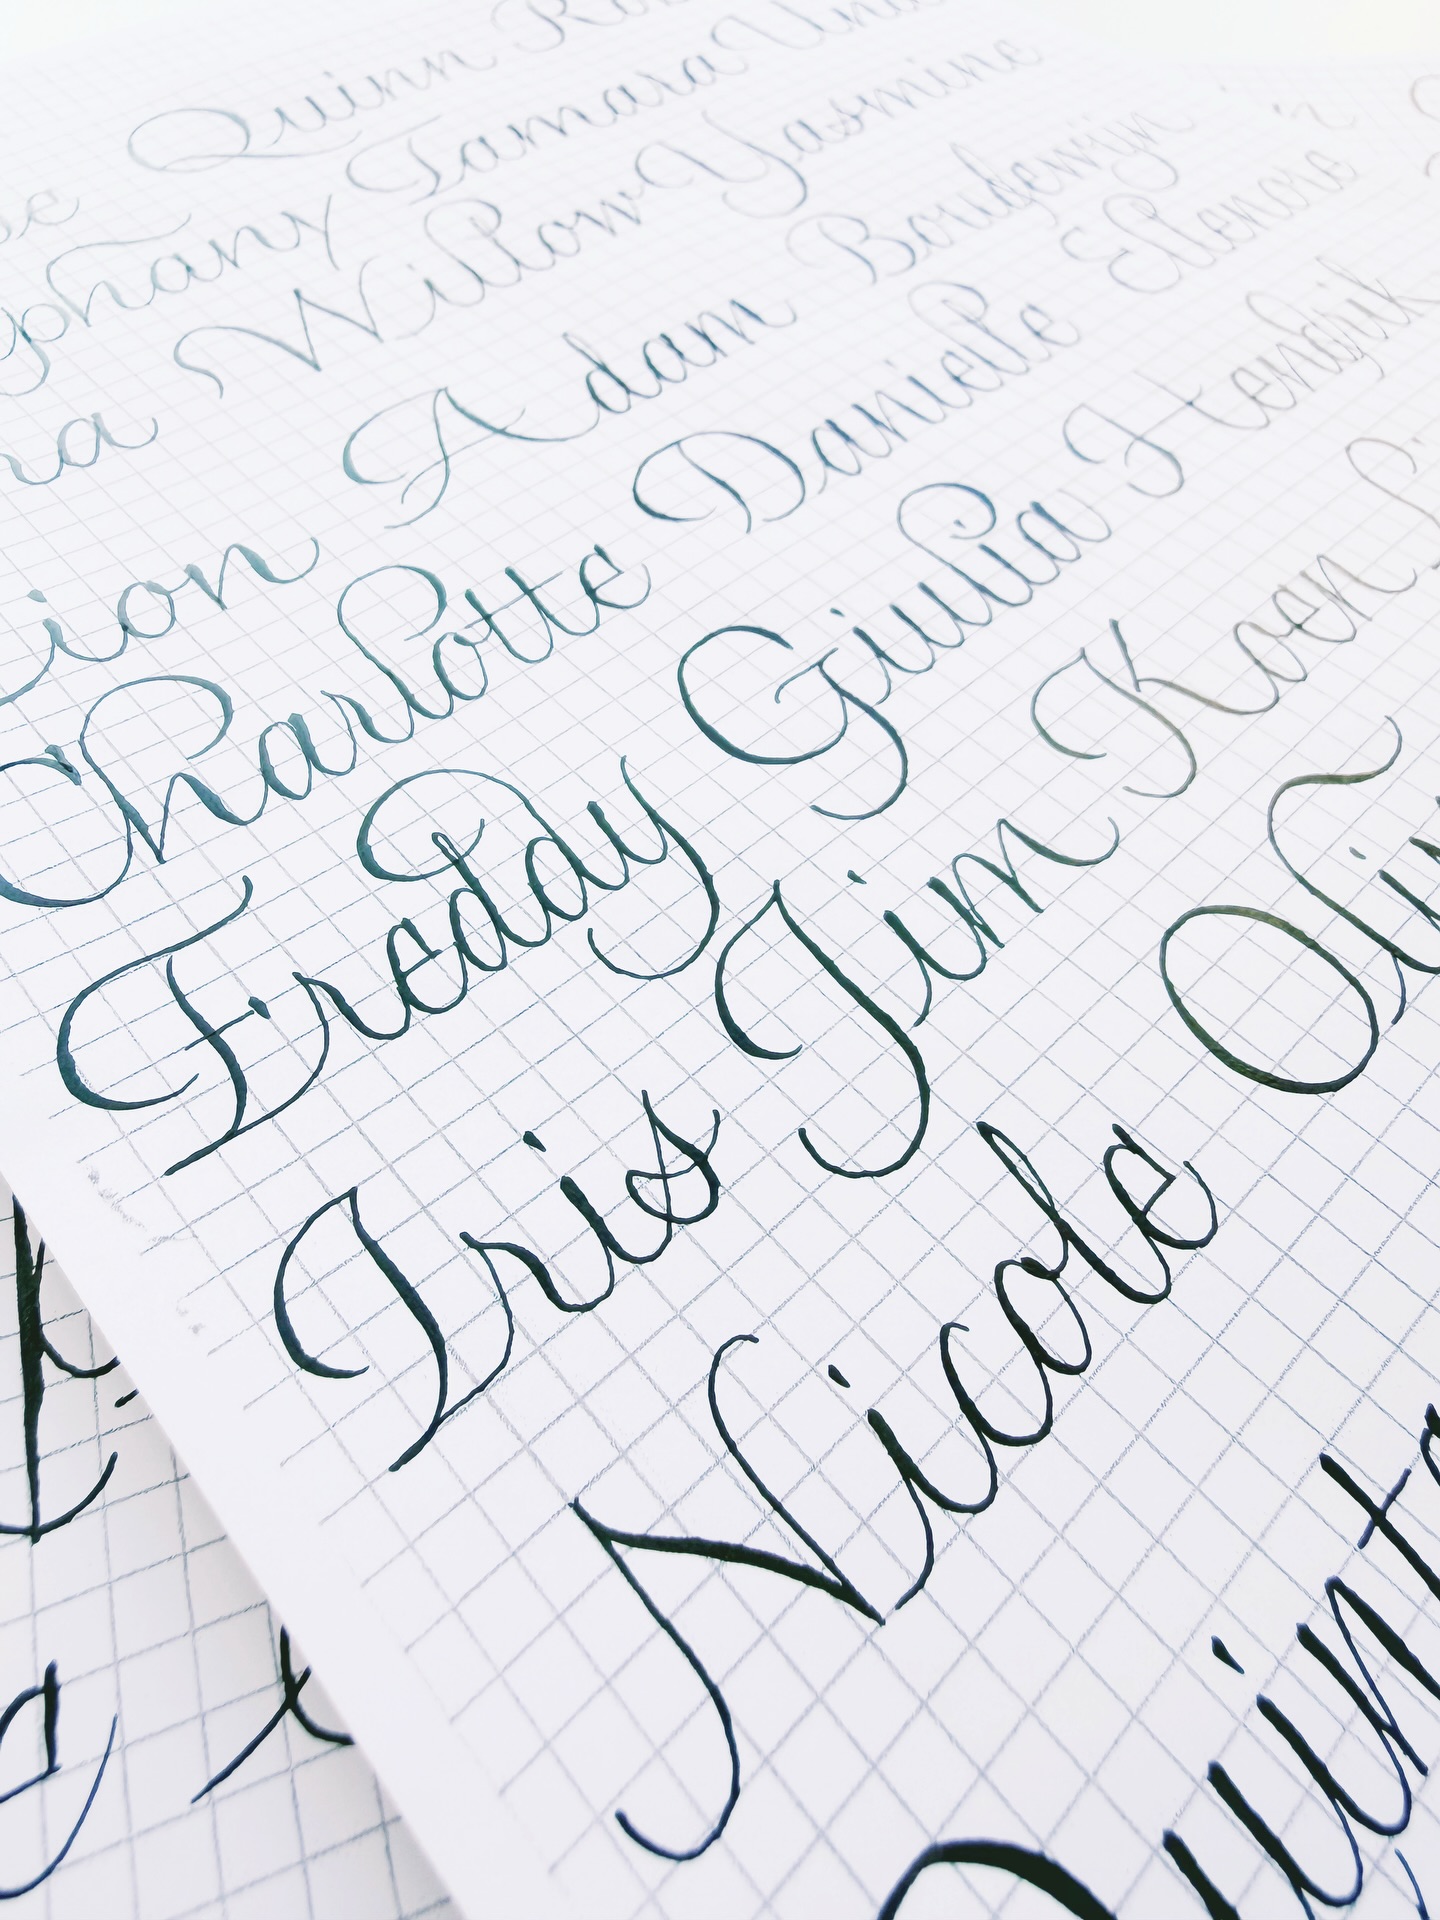 Quinn Ro
phany Tamara Un
ra Willow Yasmine
ion Adam Boudewijn
Charlotte Danielle
Freddy Giulia Hendrik
Iris Jim Koen
Nicole Oli
Quint